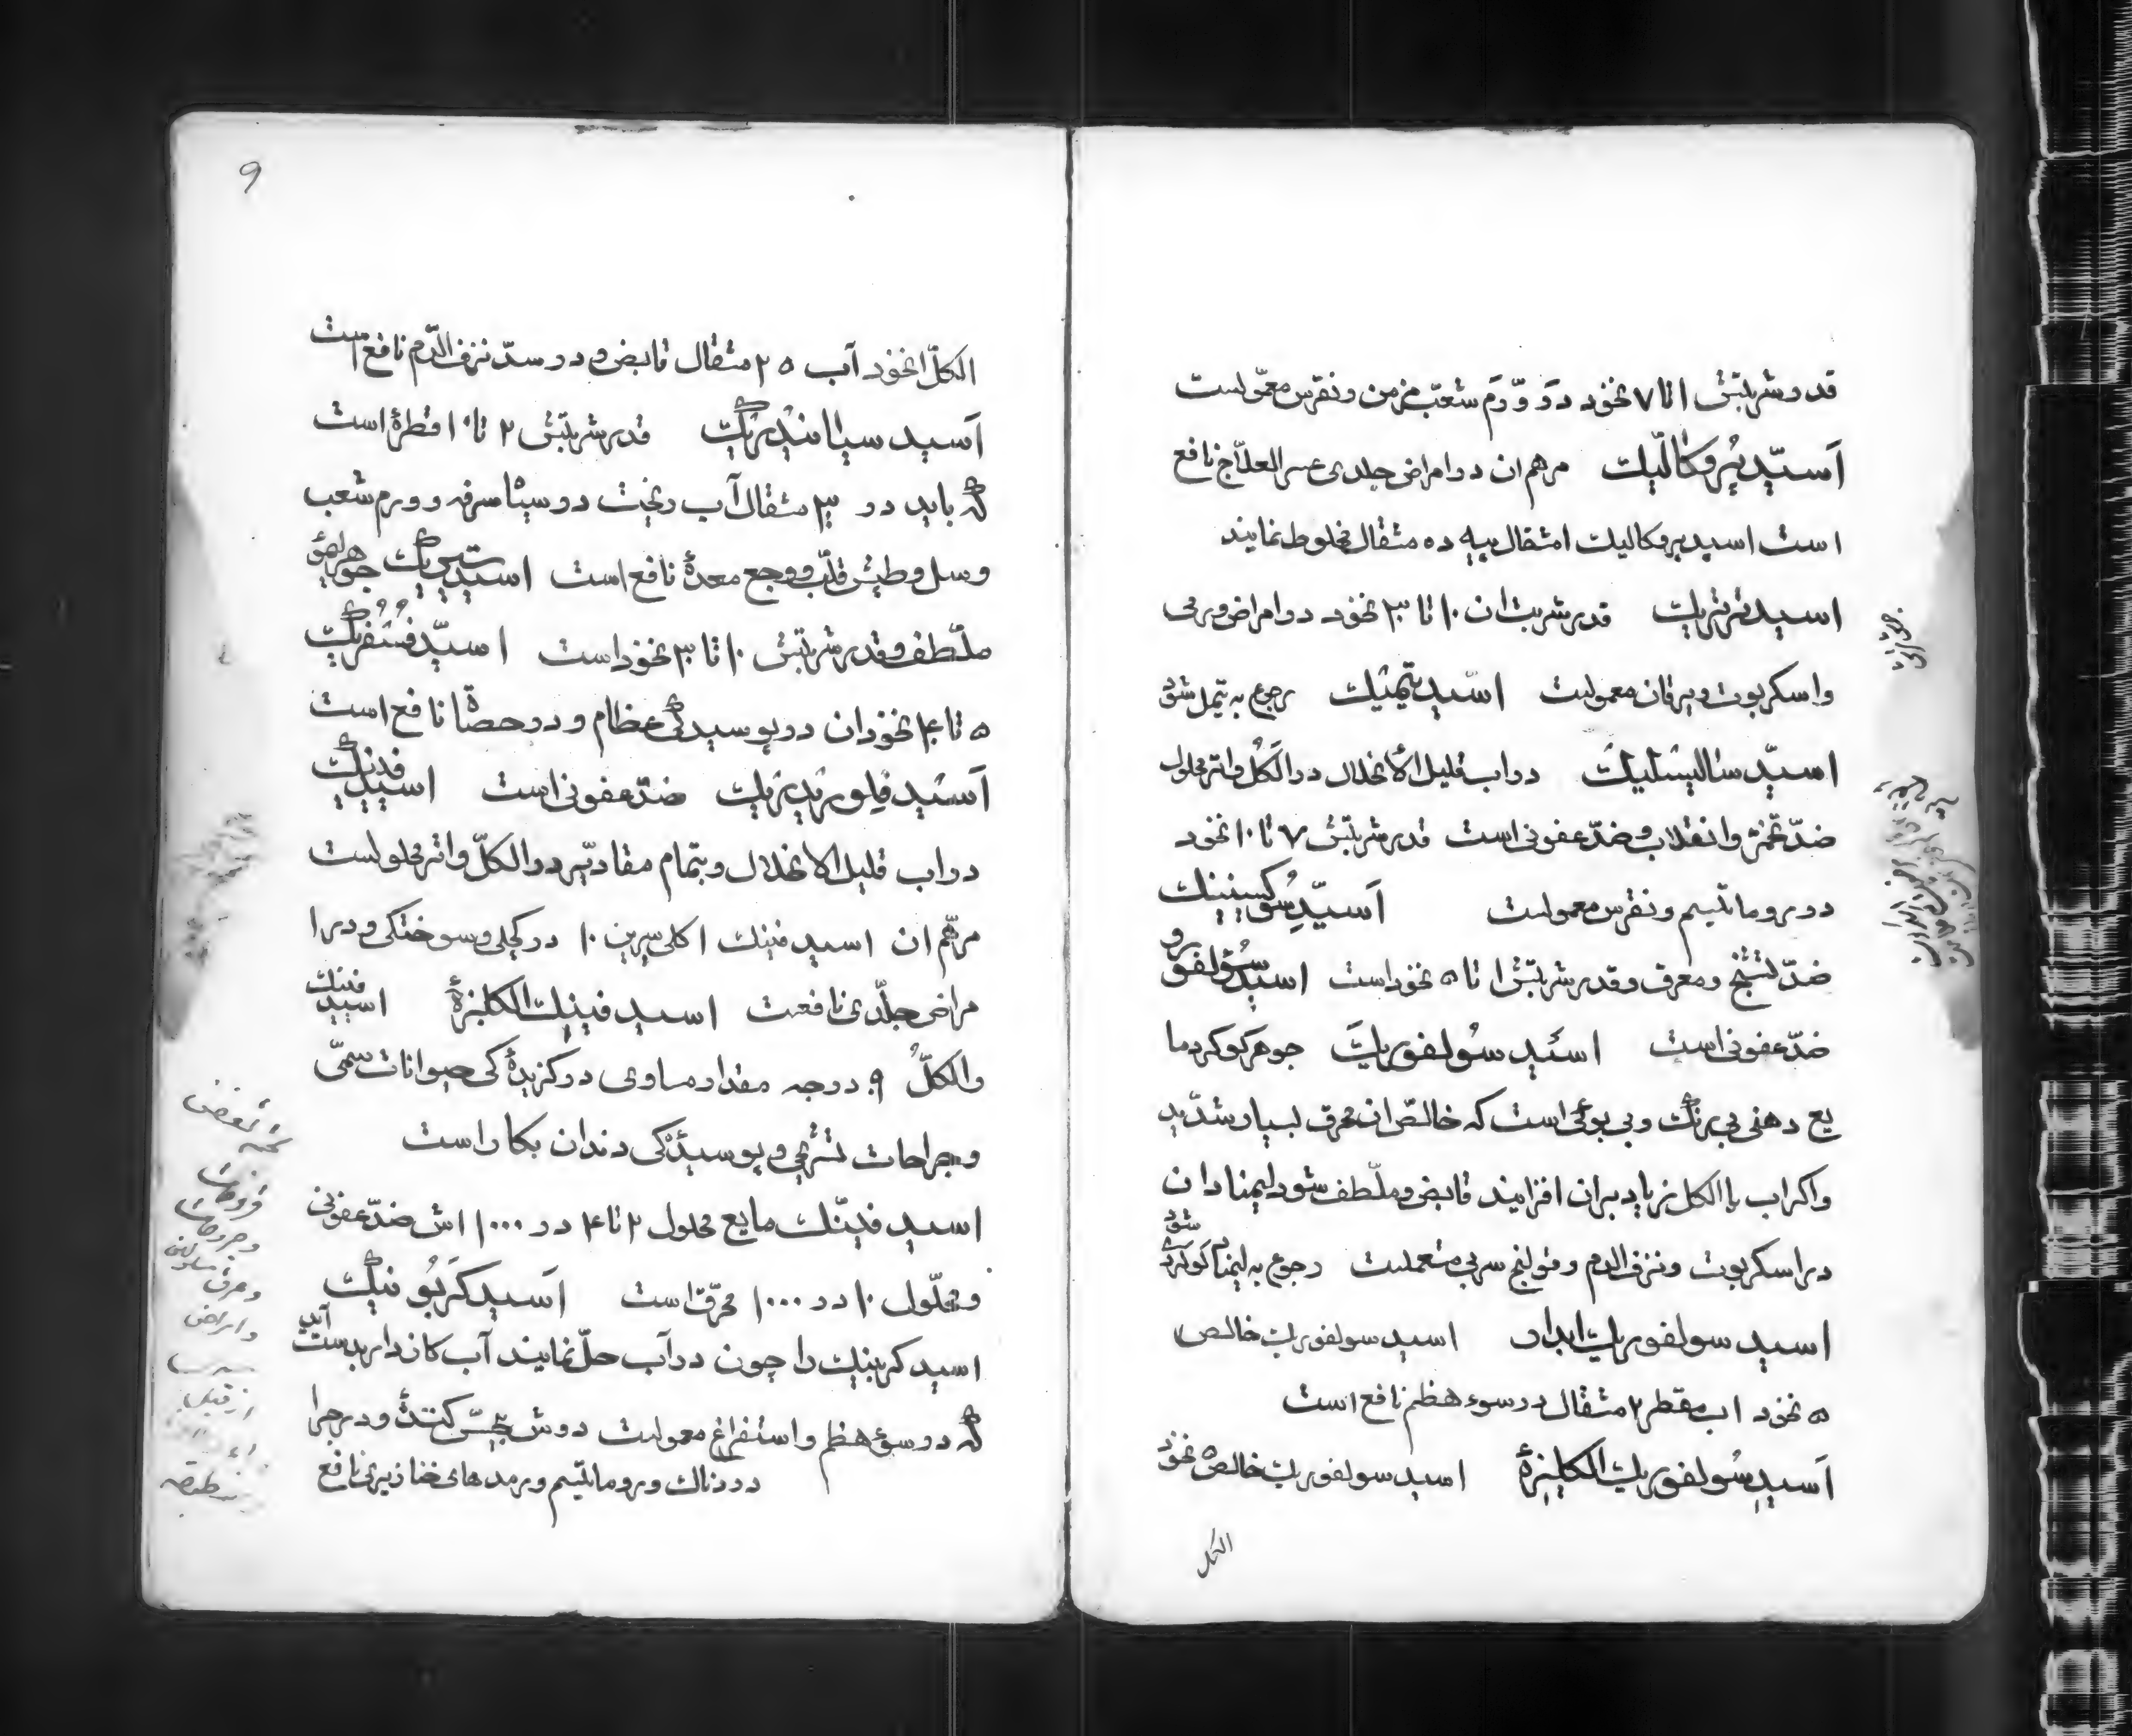 قدر شربتش ۱ تا ۷ نخود در ورم شعب مزمن و نقرس معمولست
آسید پیروکالیک مرهم ان در امراض جلدی عسر العلاج نافع
است اسید پیروکالیک ۱ مثقال پیه ده مثقال مخلوط نمایند
اسید ترتریک قدر شربت ان ۱۰ تا ۳۰ نخود در امراض ورمی
و اسکربوت و یرقان معمولست اسید تیمیک رجوع به تیمل شود
اسید سالیسلیک در اب قلیل الانحلال در الکل و اتر محلول
ضد تخمر و انقلاب و ضد عفونی است قدر شربتش ۷ تا ۱۰ نخود
در روماتیسم و نقرس معمولست آسید سوکسینیک
ضد تشنج و معرق و قدر شربتش ۱ تا ۵ نخود است اسید سولفورو
ضد عفونی است اسید سولفوریک جوهر کوکرد ما
یع دهنی بی رنک و بی بوئی است که خالص ان محرق بسیار شدید
و اکر اب یا الکل زیاد بران افزایند قابض و ملطف شود لیمنادان
در اسکربوت و نزف الدم و قولنج سربی مستعملست رجوع به لیمناد کوکردی شود
اسید سولفوریک ابدار اسید سولفوریک خالص
۵ نخود اب مقطر ۲ مثقال در سوء هظم نافع است
آسید سولفوریک الکلیزه اسید سولفوریک خالص ۵ نخود
الکل
۹
الکل ۱ نخود آب ۲۵ مثقال قابض و در سد نزف الدم نافع است
آسید سیانیدریک قدر شربتش ۲ تا ۱۰ قطره است
که باید در ۳۰ مثقال آب ریخت در سیاسرفه و ورم شعب
و سل و طپش قلب و وجع معده نافع است اسید سیتریک جوهر لیمو
ملطف و قدر شربتش ۱۰ تا ۳۰ نخود است اسید فسفریک
۵ تا ۴۰ نخودان در پوسیدکی عظام و در حصاة نافع است
آسید فلوریدریک ضد عفونی است اسید فنیک
در اب قلیل الانحلال و بتمام مقادیر در الکل و اتر محلولست
مرهم ان اسید فنیک ۱ کلیسرین ۱۰ در کچلی و سوختکی و در ا
مراض جلدی نافعست اسید فینیک الکلیزه اسید فنیک
و الکل ۹۰ درجه مقدار مساوی در کزیده کی حیوانات سمی
و جراحات تشریحی و پوسیدکی دندان بکار است
اسید فینیک مایع محلول ۲ تا ۴ در ۱۰۰۰ اش ضد عفونی
و محلول ۱۰ در ۱۰۰۰ محرق است آسید کربونیک
اسید کربنیک را چون در آب حل نمایند آب کازدار بدست آید
که در سوء هظم و استفراغ معمولست دوش بی حس کننده و در جرا
دردناک و روماتیسم و رمدهای خنازیری نافع